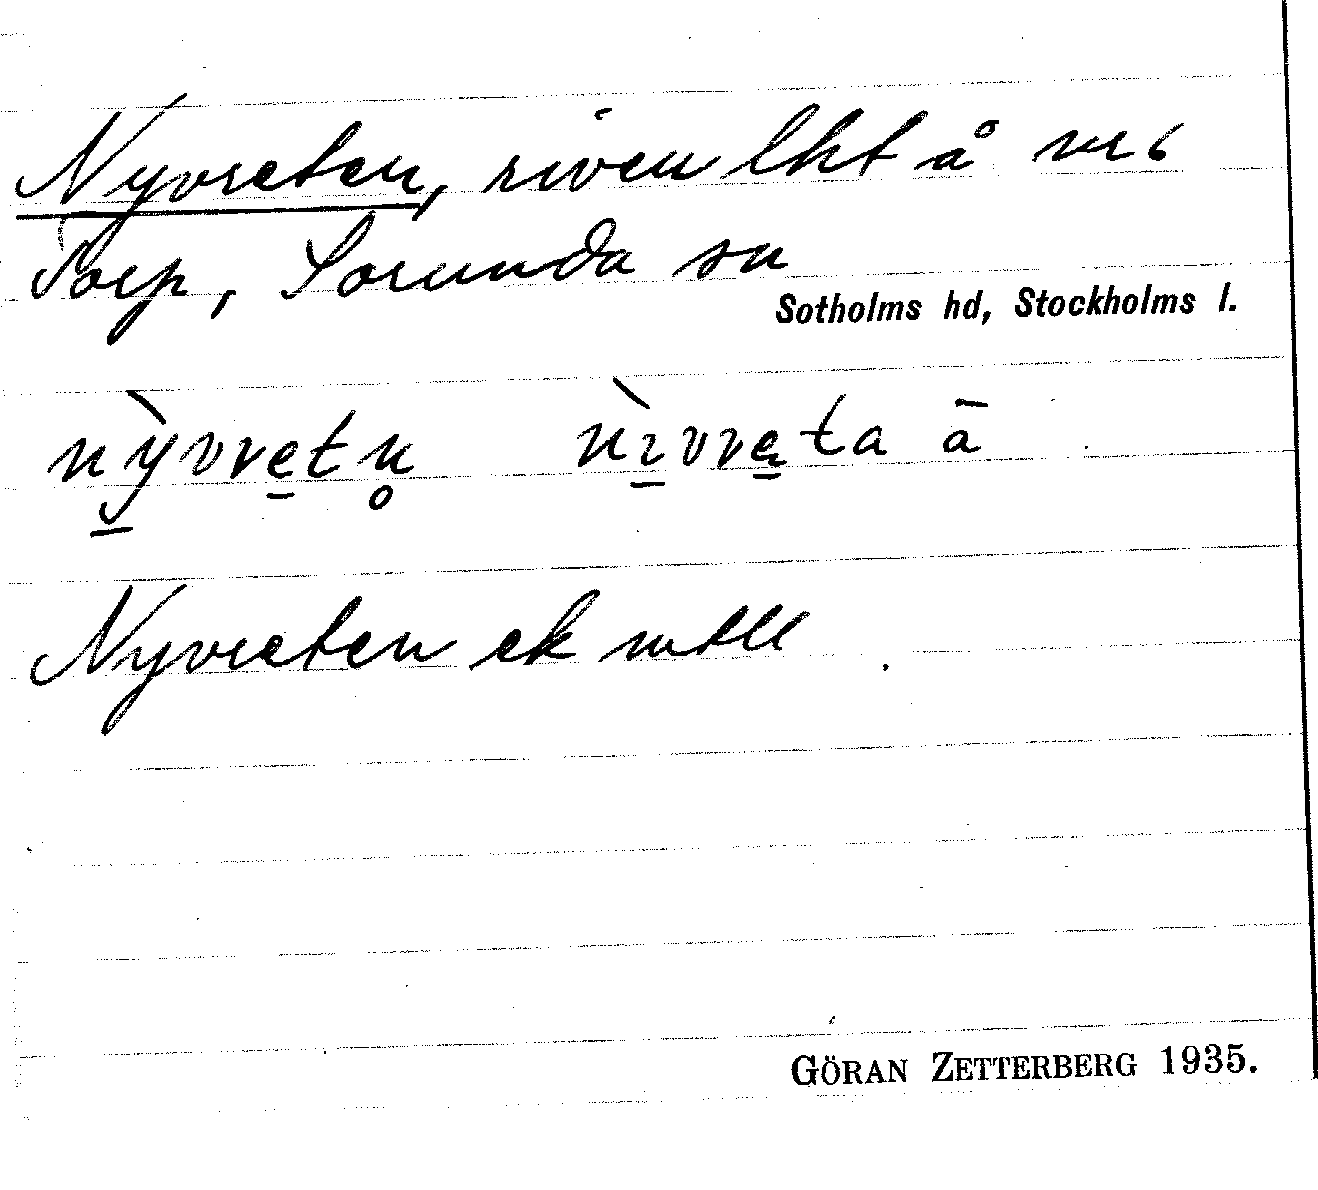 Nyvreten, riven lht å nr 6
Torp, Sorunda sn
Sotholms hd, Stockholms l.
nỳvretn̥ nìvreta ā
Nyvreten ek mtll
GÖRAN ZETTERBERG 1935.